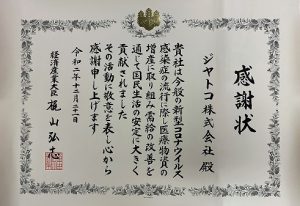 感謝状
ジヤトコ株式会社 殿
貴社は今般の新型コロナウイルス
感染症の流行に際し医療物資の
増産に取り組み需給の改善を
通じて国民生活の安定に大きく
貢献されました
その活動に敬意を表し心から
感謝申し上げます
令和二年十二月二十一日
経済産業大臣 梶山弘志